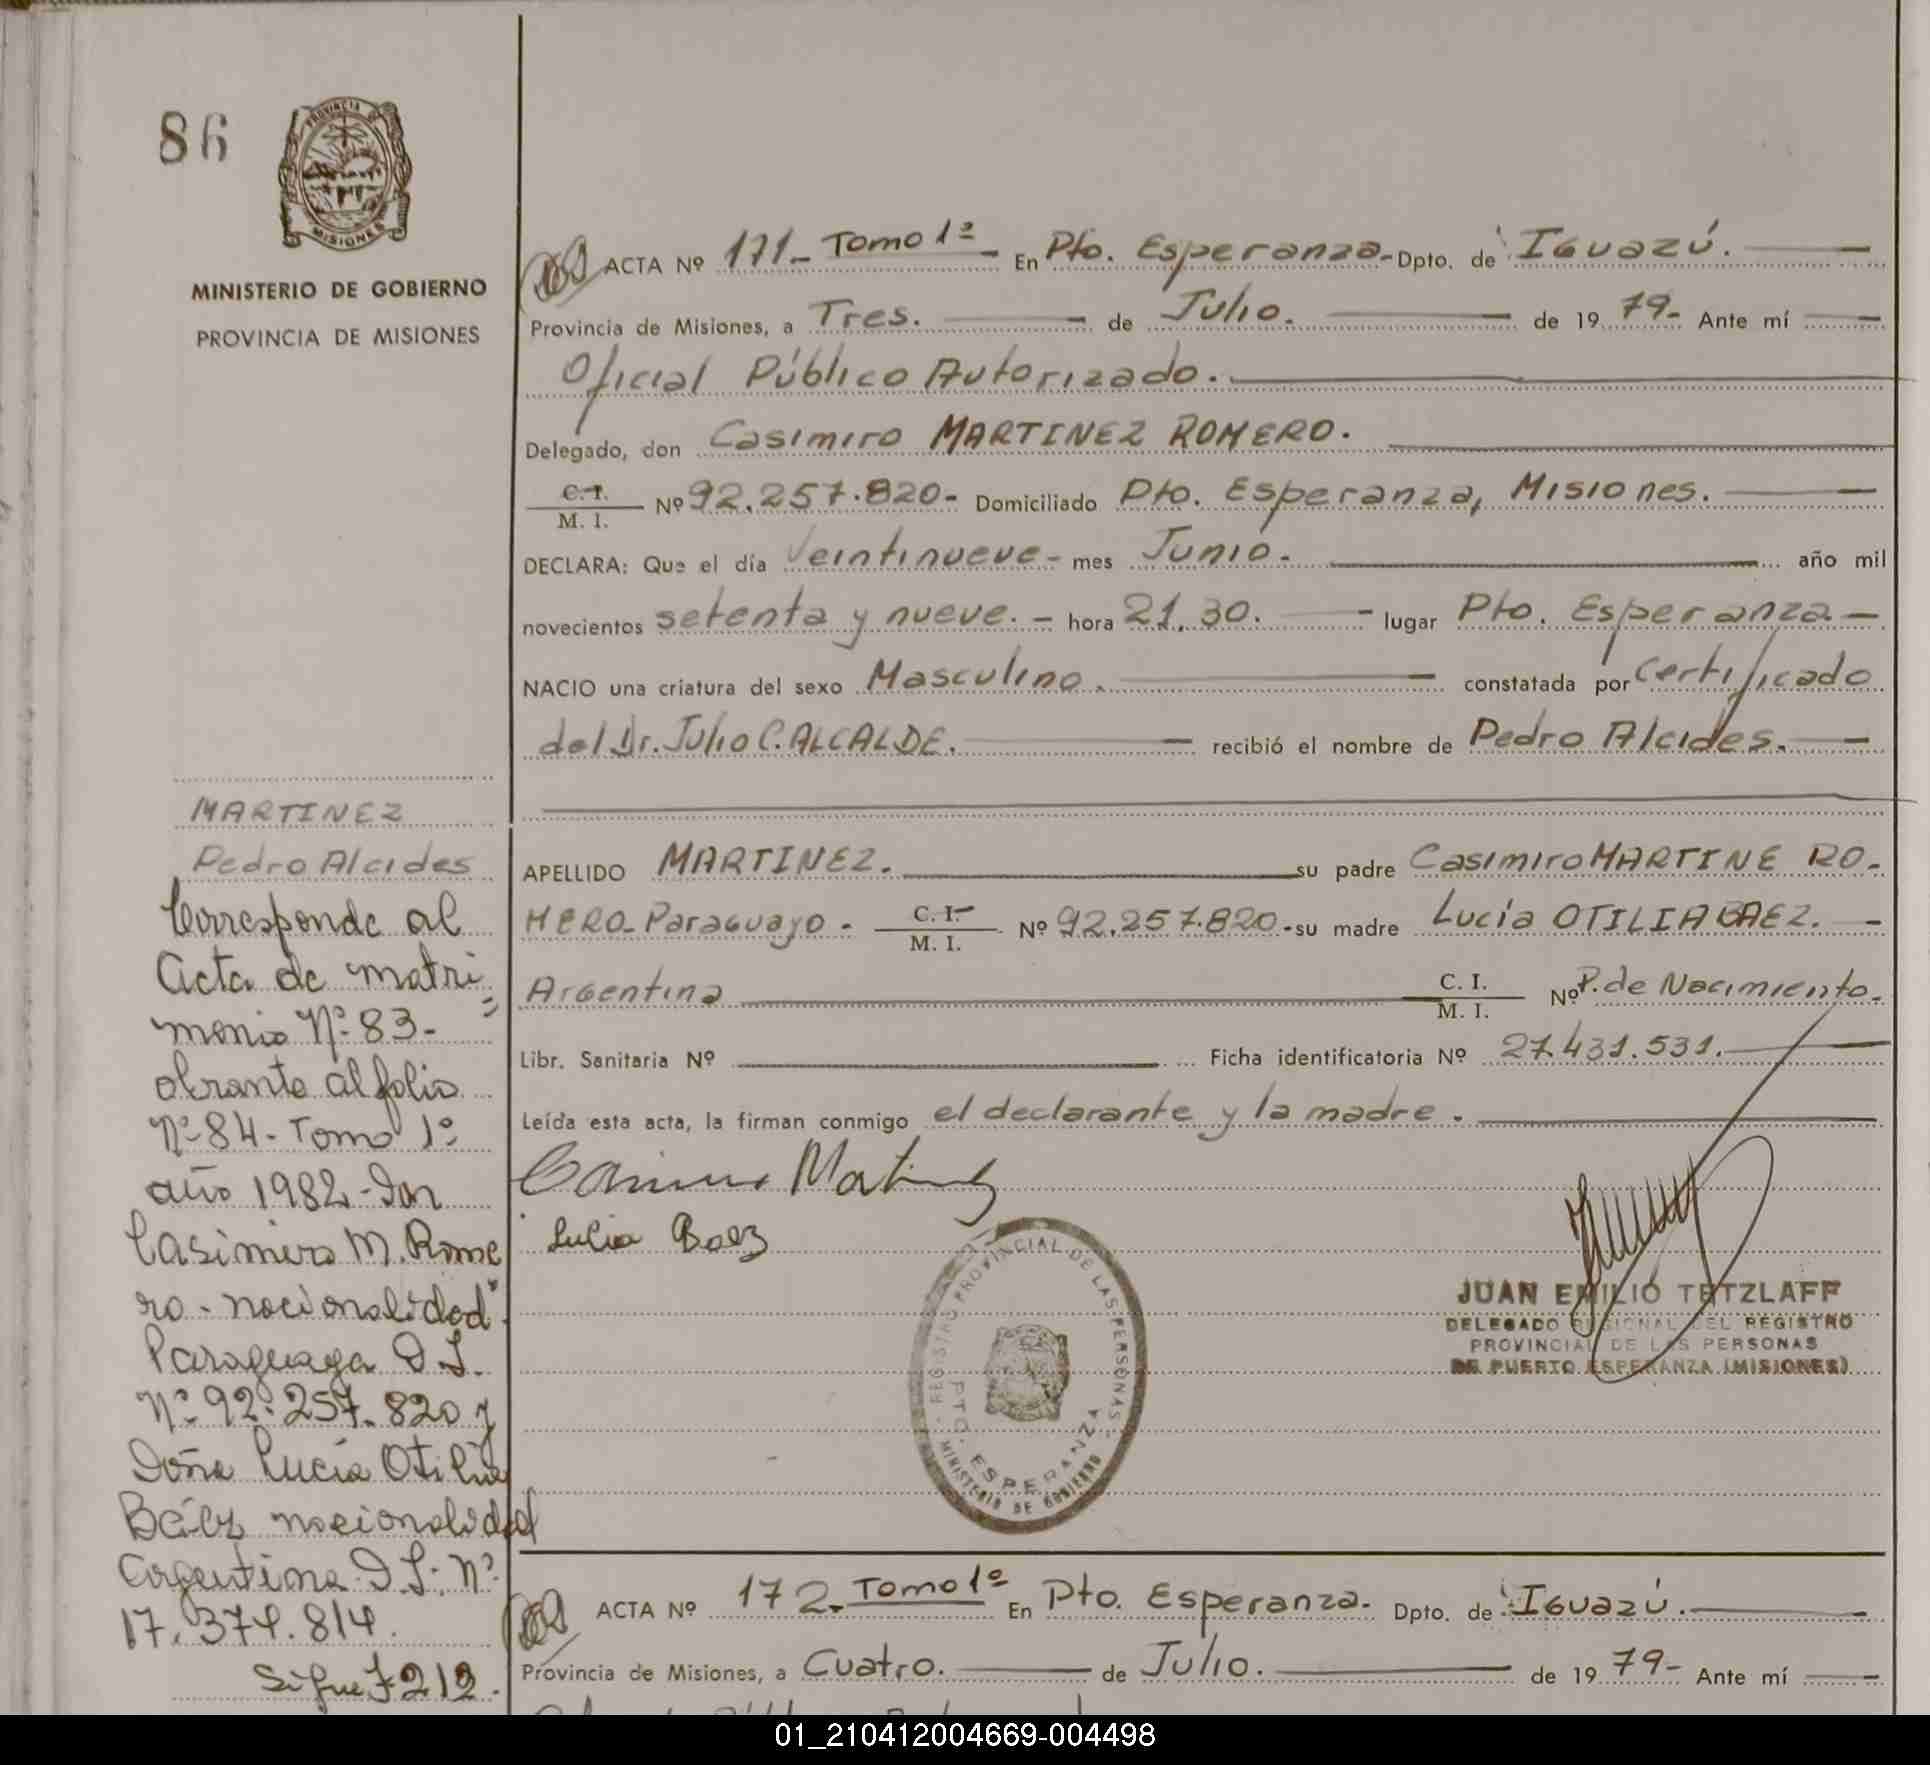 86
PROVINCIA DE
MISIONES
MINISTERIO DE GOBIERNO
PROVINCIA DE MISIONES
ACTA Nº 171- Tomo 1º - En Pto. Esperanza- Dpto. de Iguazú.
Provincia de Misiones, a Tres. de Julio. de 19 79- Ante mí
Oficial Público Autorizado.
Delegado, don Casimiro MARTINEZ ROMERO.
C. I.
M. I. Nº 92.257.820- Domiciliado Pto. Esperanza, Misiones.
DECLARA: Que el día Veintinueve- mes Junio- año mil
novecientos setenta y nueve. - hora 21,30. - lugar Pto. Esperanza -
NACIO una criatura del sexo Masculino. constatada por Certificado
del Dr. Julio C. ALCALDE. recibió el nombre de Pedro Alcides.
APELLIDO MARTINEZ. su padre Casimiro MARTINE RO-
MERO- Paraguayo - C. I.
M. I. Nº 92.257.820- su madre Lucía OTILIA BAEZ. -
Argentina C. I.
M. I. Nº P. de Nacimiento.
Libr. Sanitaria Nº Ficha identificatoria Nº 27.431.531.
Leída esta acta, la firman conmigo el declarante y la madre.
Lucia Baez
REGISTRO PROVINCIAL DE LAS PERSONAS
PTO. ESPERANZA
MINISTERIO DE GOBIERNO
JUAN EMILIO TETZLAFF
DELEGADO REGIONAL DEL REGISTRO
PROVINCIAL DE LAS PERSONAS
DE PUERTO ESPERANZA (MISIONES)
MARTINEZ
Pedro Alcides
Corresponde al
Acta de matri=
monio Nº 83-
obrante al folio
Nº 84- Tomo 1º
año 1982- Don
Casimiro M. Rome
ro- nacionalidad
Paraguaya D.I.
Nº 92.257.820 y
Doña Lucía Otilia
Báez nacionalidad
Argentina D.I. Nº
17.374.814.
Sigue F 212.
ACTA Nº 172- Tomo 1º En Pto. Esperanza- Dpto. de Iguazú.
Provincia de Misiones, a Cuatro. de Julio. de 19 79- Ante mí
01_210412004669-004498